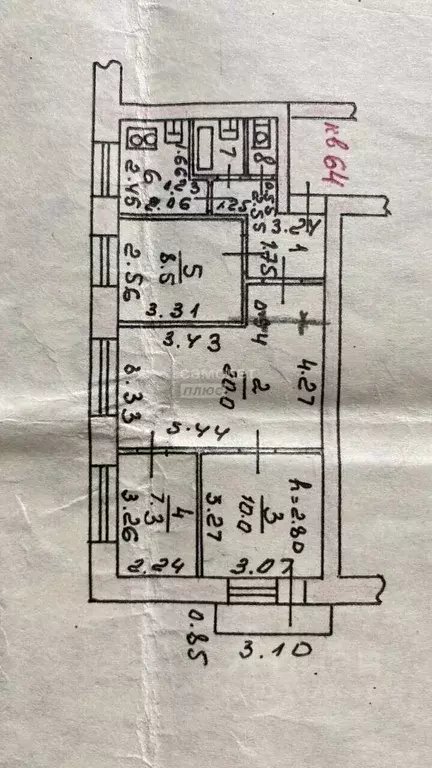 кв 64
6
2.46
1.66
1.23
2.06
7
8
1.25
0.55
2.55
3.24
1
1.75
5
8.5
2.56
3.31
0.94
3.43
самолет
плюс
2
20.0
4.27
3.33
5.44
4
7.3
3.26
2.24
3
10.0
3.27
h=2.80
3.07
0.85
3.10